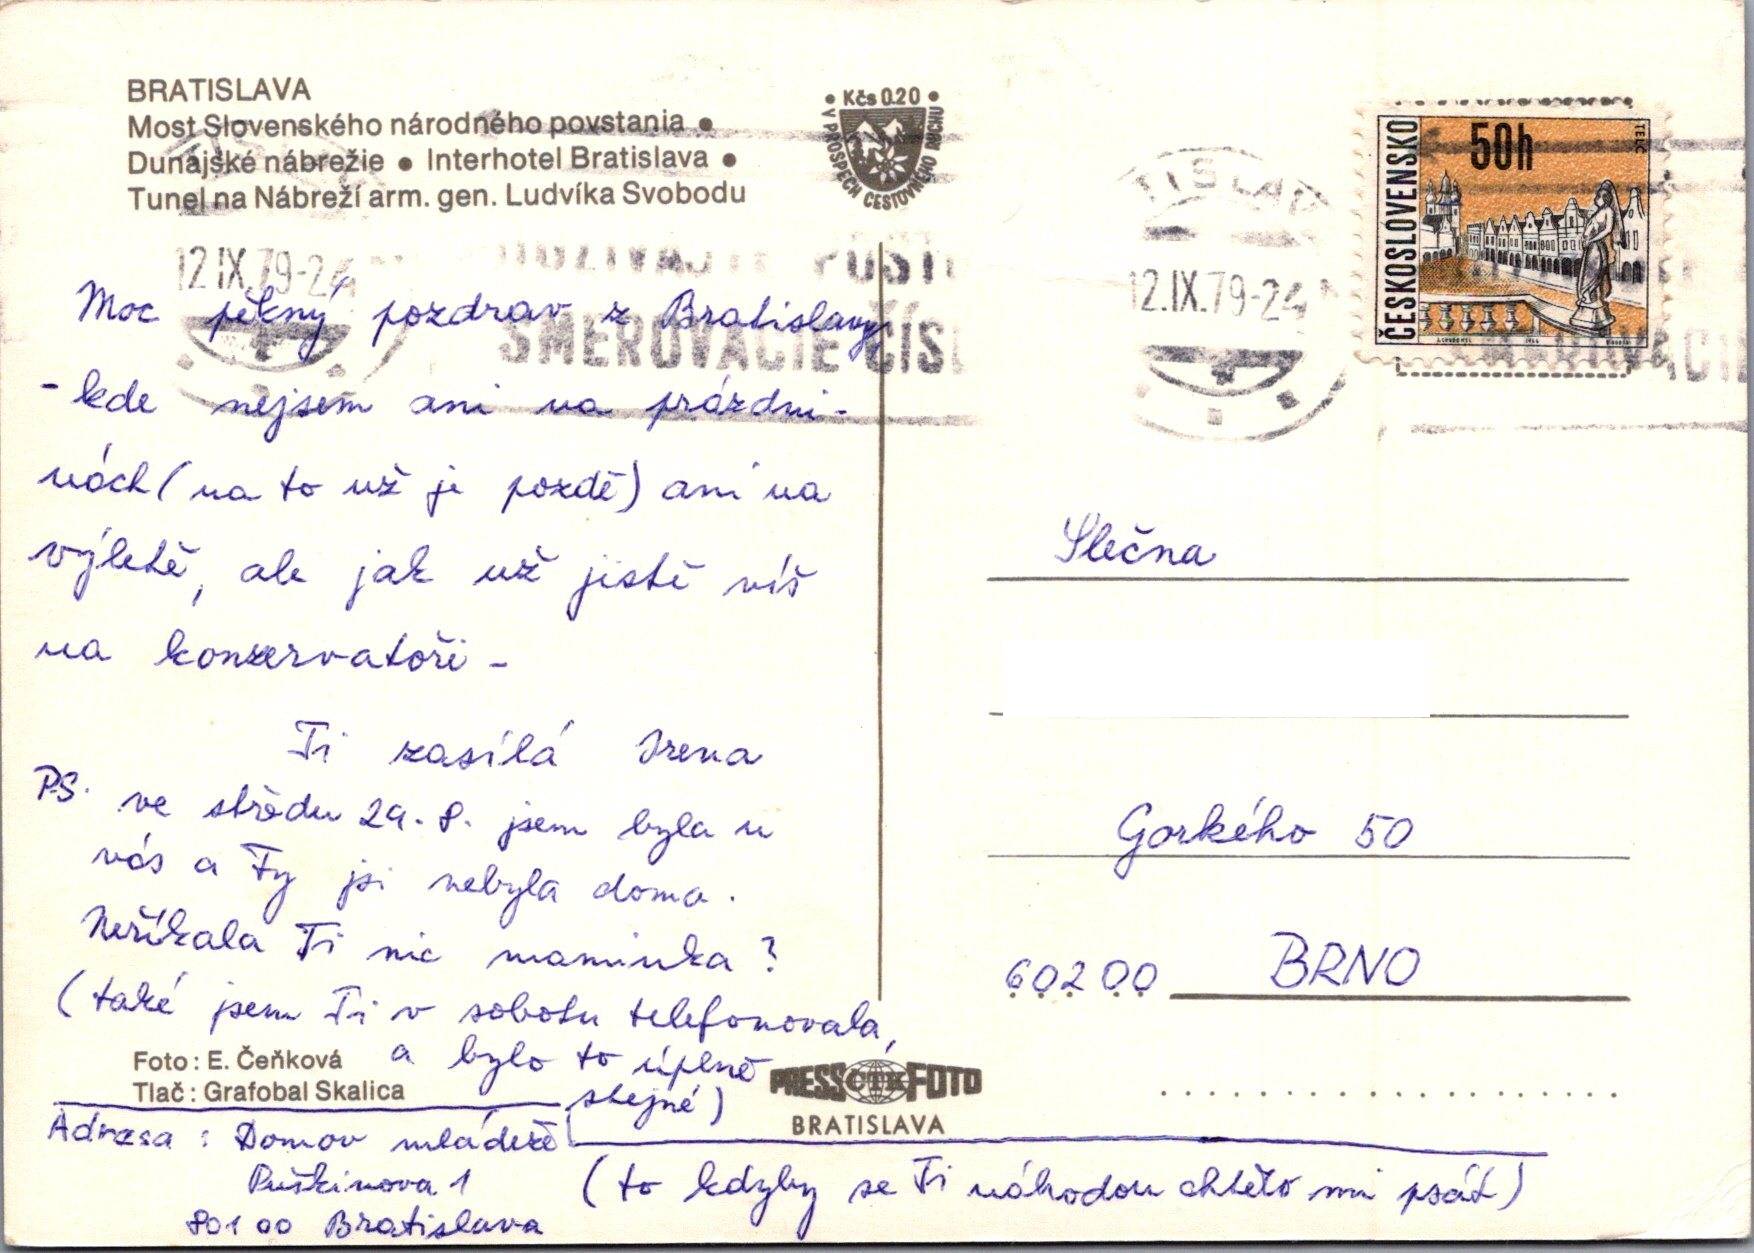 BRATISLAVA
Most Slovenského národného povstania •
Dunajské nábrežie • Interhotel Bratislava •
Tunel na Nábreží arm. gen. Ludvíka Svobodu
• Kčs 0.20 •
V PROSPECH CESTOVNÉHO RUCHU
12.IX.79-24
SMEROVACIE ČÍS
TISLAV
12.IX.79-24
ČESKOSLOVENSKO
50h
TELČ
Moc pěkný pozdrav z Bratislavy,
- kde nejsem ani na prázdni-
nách (na to už je pozdě) ani na
výletě, ale jak už jistě víš
na konzervatoři -
Ti zasílá Irena
PS. ve středu 29.8. jsem byla u
vás a Ty jsi nebyla doma.
Neříkala Ti nic maminka?
(také jsem Ti v sobotu telefonovala,
a bylo to úplně
stejné)
Foto: E. Čeňková
Tlač: Grafobal Skalica
PRESS ČTK FOTO
BRATISLAVA
Adresa: Domov mládeže
Puškinova 1
801 00 Bratislava
(to kdyby se Ti náhodou chtělo mi psát)
Slečna
Gorkého 50
602 00 BRNO